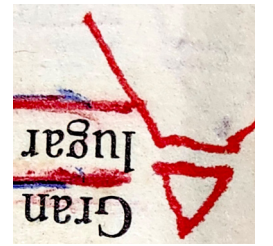 Gran
lugar